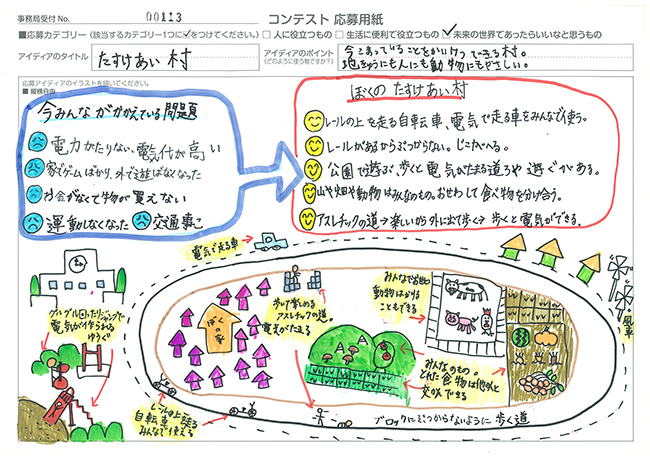 事務局受付No. 00113 コンテスト 応募用紙
■応募カテゴリー(該当するカテゴリー1つに✓をつけてください。) □人に役立つもの □生活に便利で役立つもの ☑未来の世界であったらいいなと思うもの
アイディアのタイトル たすけあい村
アイディアのポイント
(どのように使う物ですか?)
今こまっていることをかいけつできる村。
地きゅうにも人にも動物にもやさしい。
応募アイディアのイラストを描いてください。
■縦横自由
今みんながかかえている問題
電力がたりない、電気代が高い
家でゲームばかり、外で遊ばなくなった
お金がなくて物が買えない
運動しなくなった 交通事こ
ぼくの たすけあい村
レールの上を走る自転車、電気で走る車をみんなで使う。
レールがあるからぶつからない。じこがへる。
公園で遊ぶ、歩くと電気がたまる道ろや遊ぐがある。
山や畑や動物はみんなのもの。おせわして食べ物を分け合う。
アスレチックの道→楽しいから外に出て歩く→歩くと電気ができる。
電気で走る車
グルグル回ったりジャンプで
電気が作りまくれる
ゆうぐ
歩いて楽しめる
アスレチックの道
電気がたまる
ぼく
の
家
みんなでお世話
動物はかりる
こともできる
みんなのもの
とれた食物は他の人と
交かんできる
風車
レールの上を走る
自転車
みんなで使える
ブロックにぶつからないように 歩く道